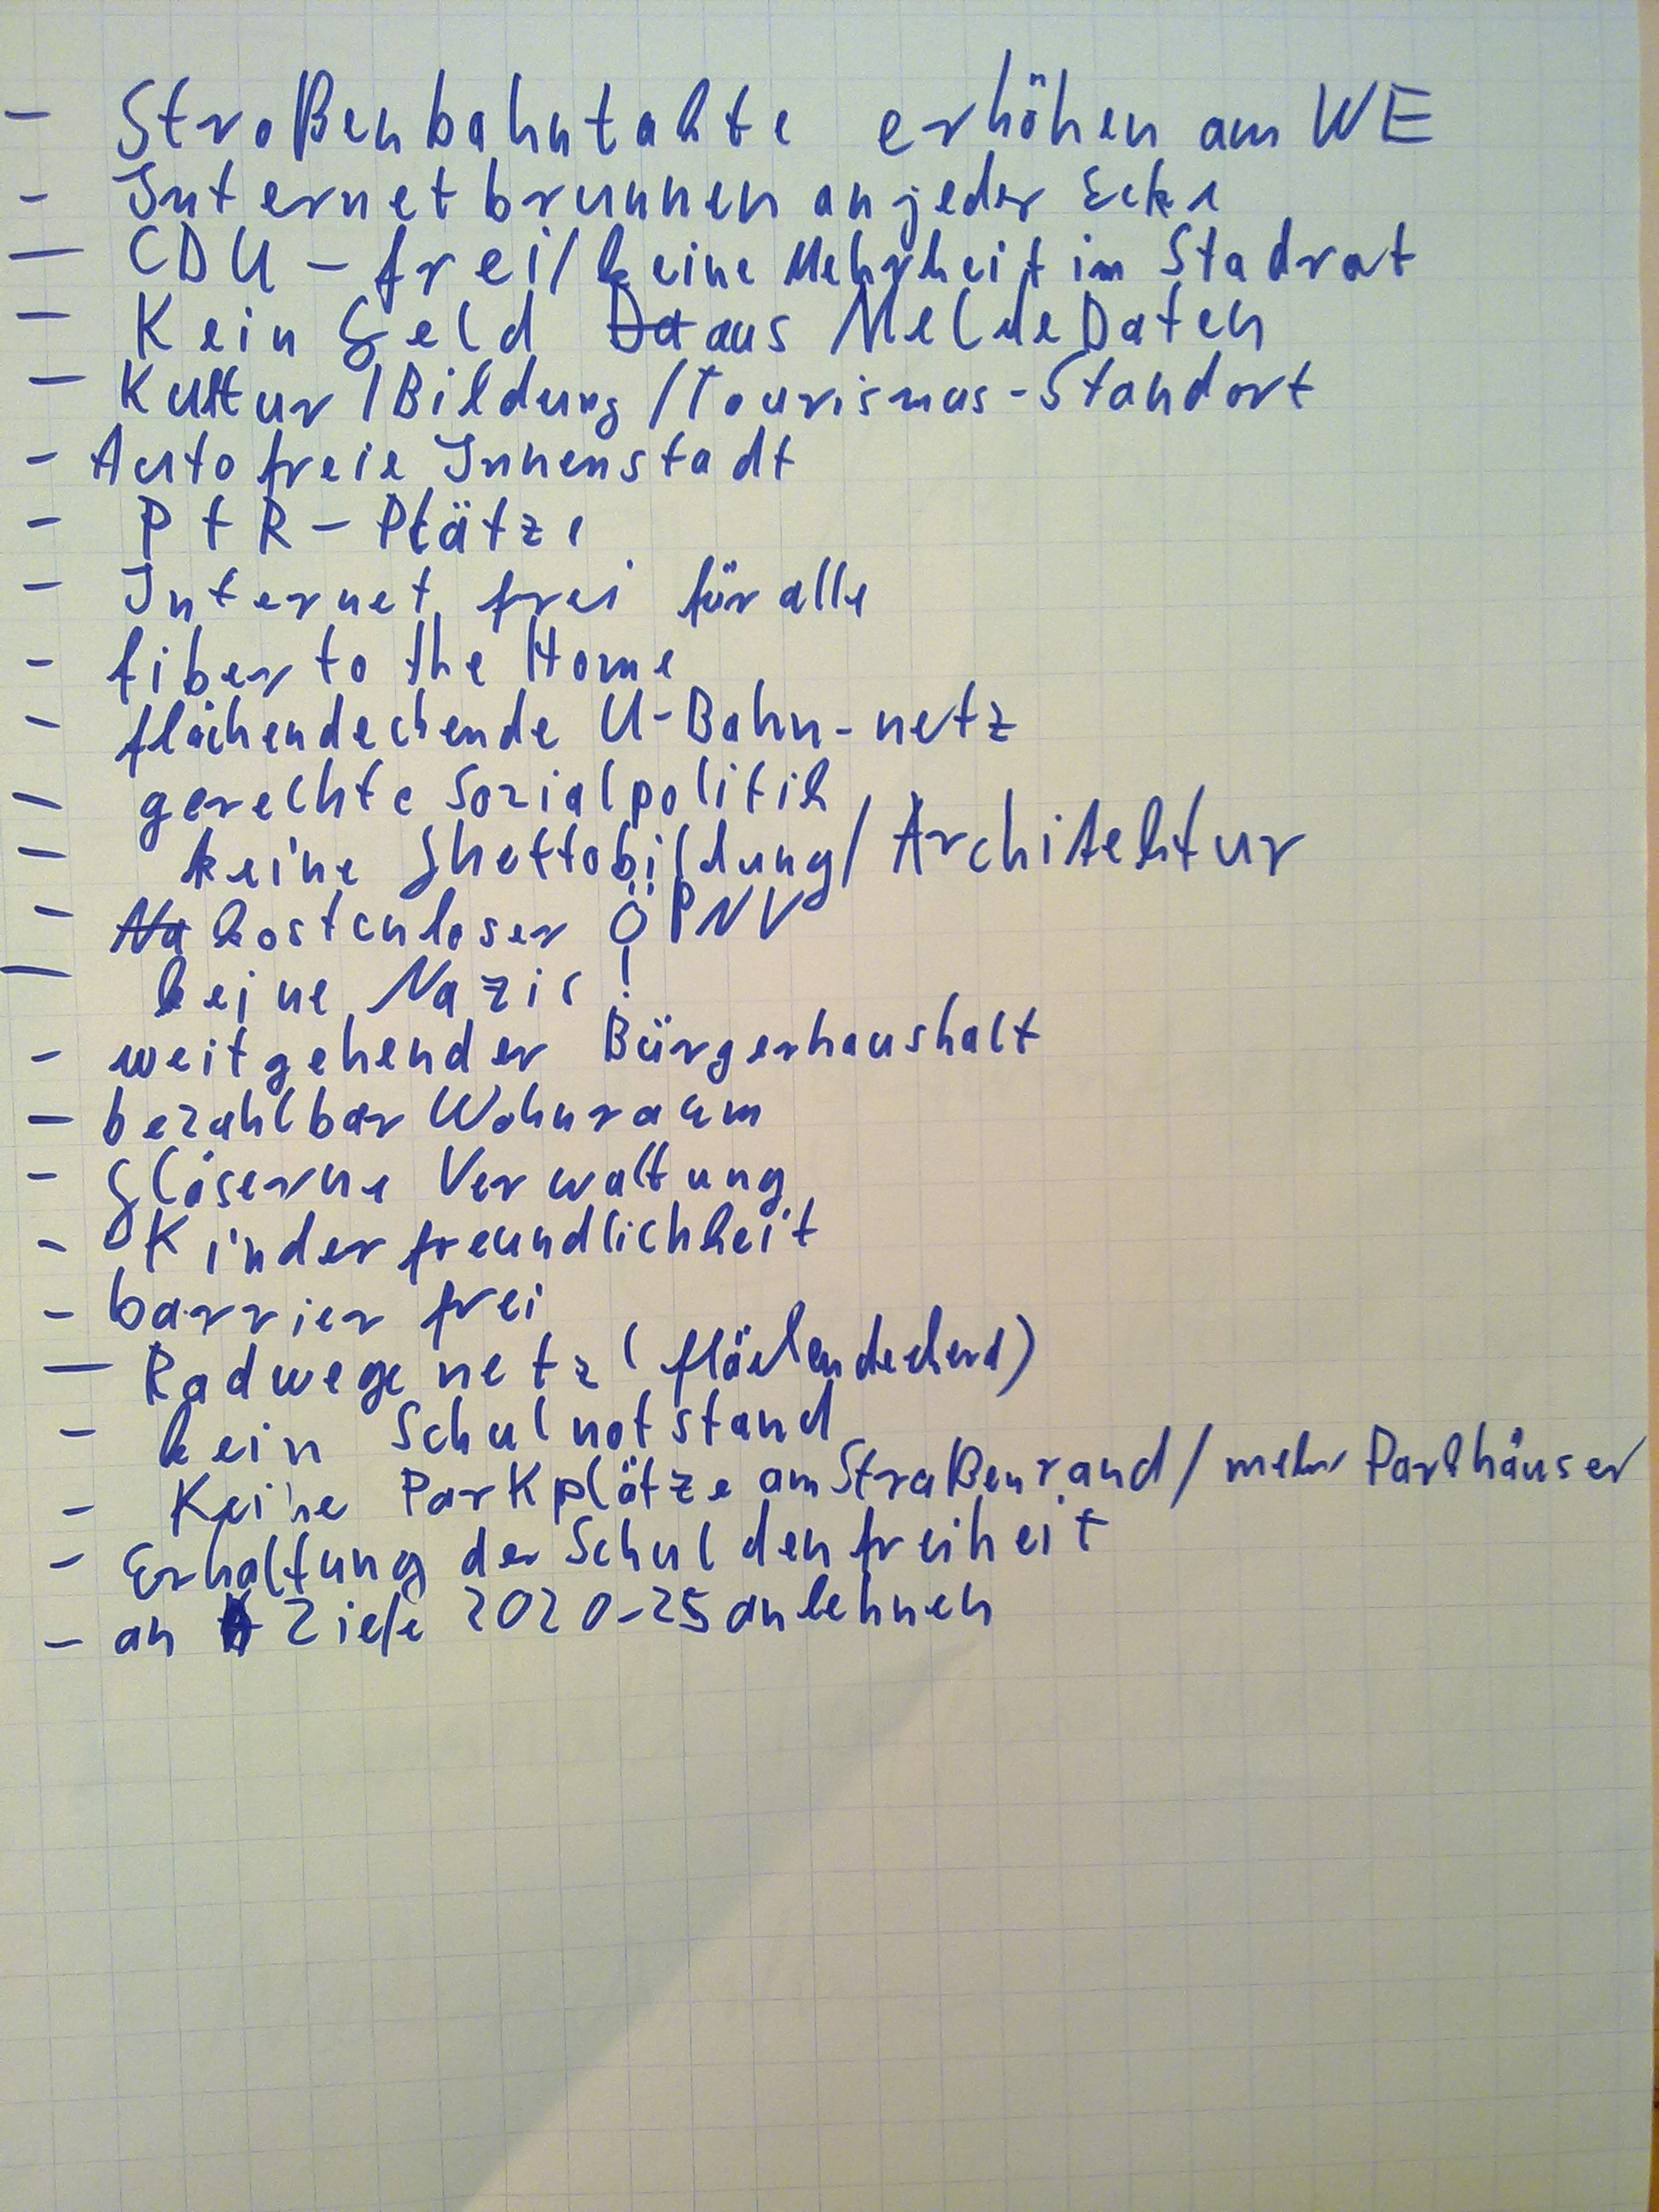 - Straßenbahntakte erhöhen am WE
- Internetbrunnen an jeder Ecke
- CDU - frei/keine Mehrheit im Stadrat
- Kein Geld Da aus MeldeDaten
- Kultur/Bildung/Tourismus-Standort
- Autofreie Innenstadt
- P+R - Plätze
- Internet frei für alle
- fiber to the Home
- flächendeckende U-Bahn-netz
- gerechte Sozialpolitik
- keine Ghettobildung/Architektur
- Na kostenloser ÖPNV
- keine Nazis!
- weitgehender Bürgerhaushalt
- bezahlbar Wohnraum
- Gläserne Verwaltung
- Kinderfreundlichkeit
- barrierfrei
- Radwegenetz (flächendeckend)
- kein Schulnotstand
- Keine Parkplätze am Straßenrand/mehr Parkhäuser
- Erhaltung der Schuldenfreiheit
- an Ziele 2020-25 anlehnen